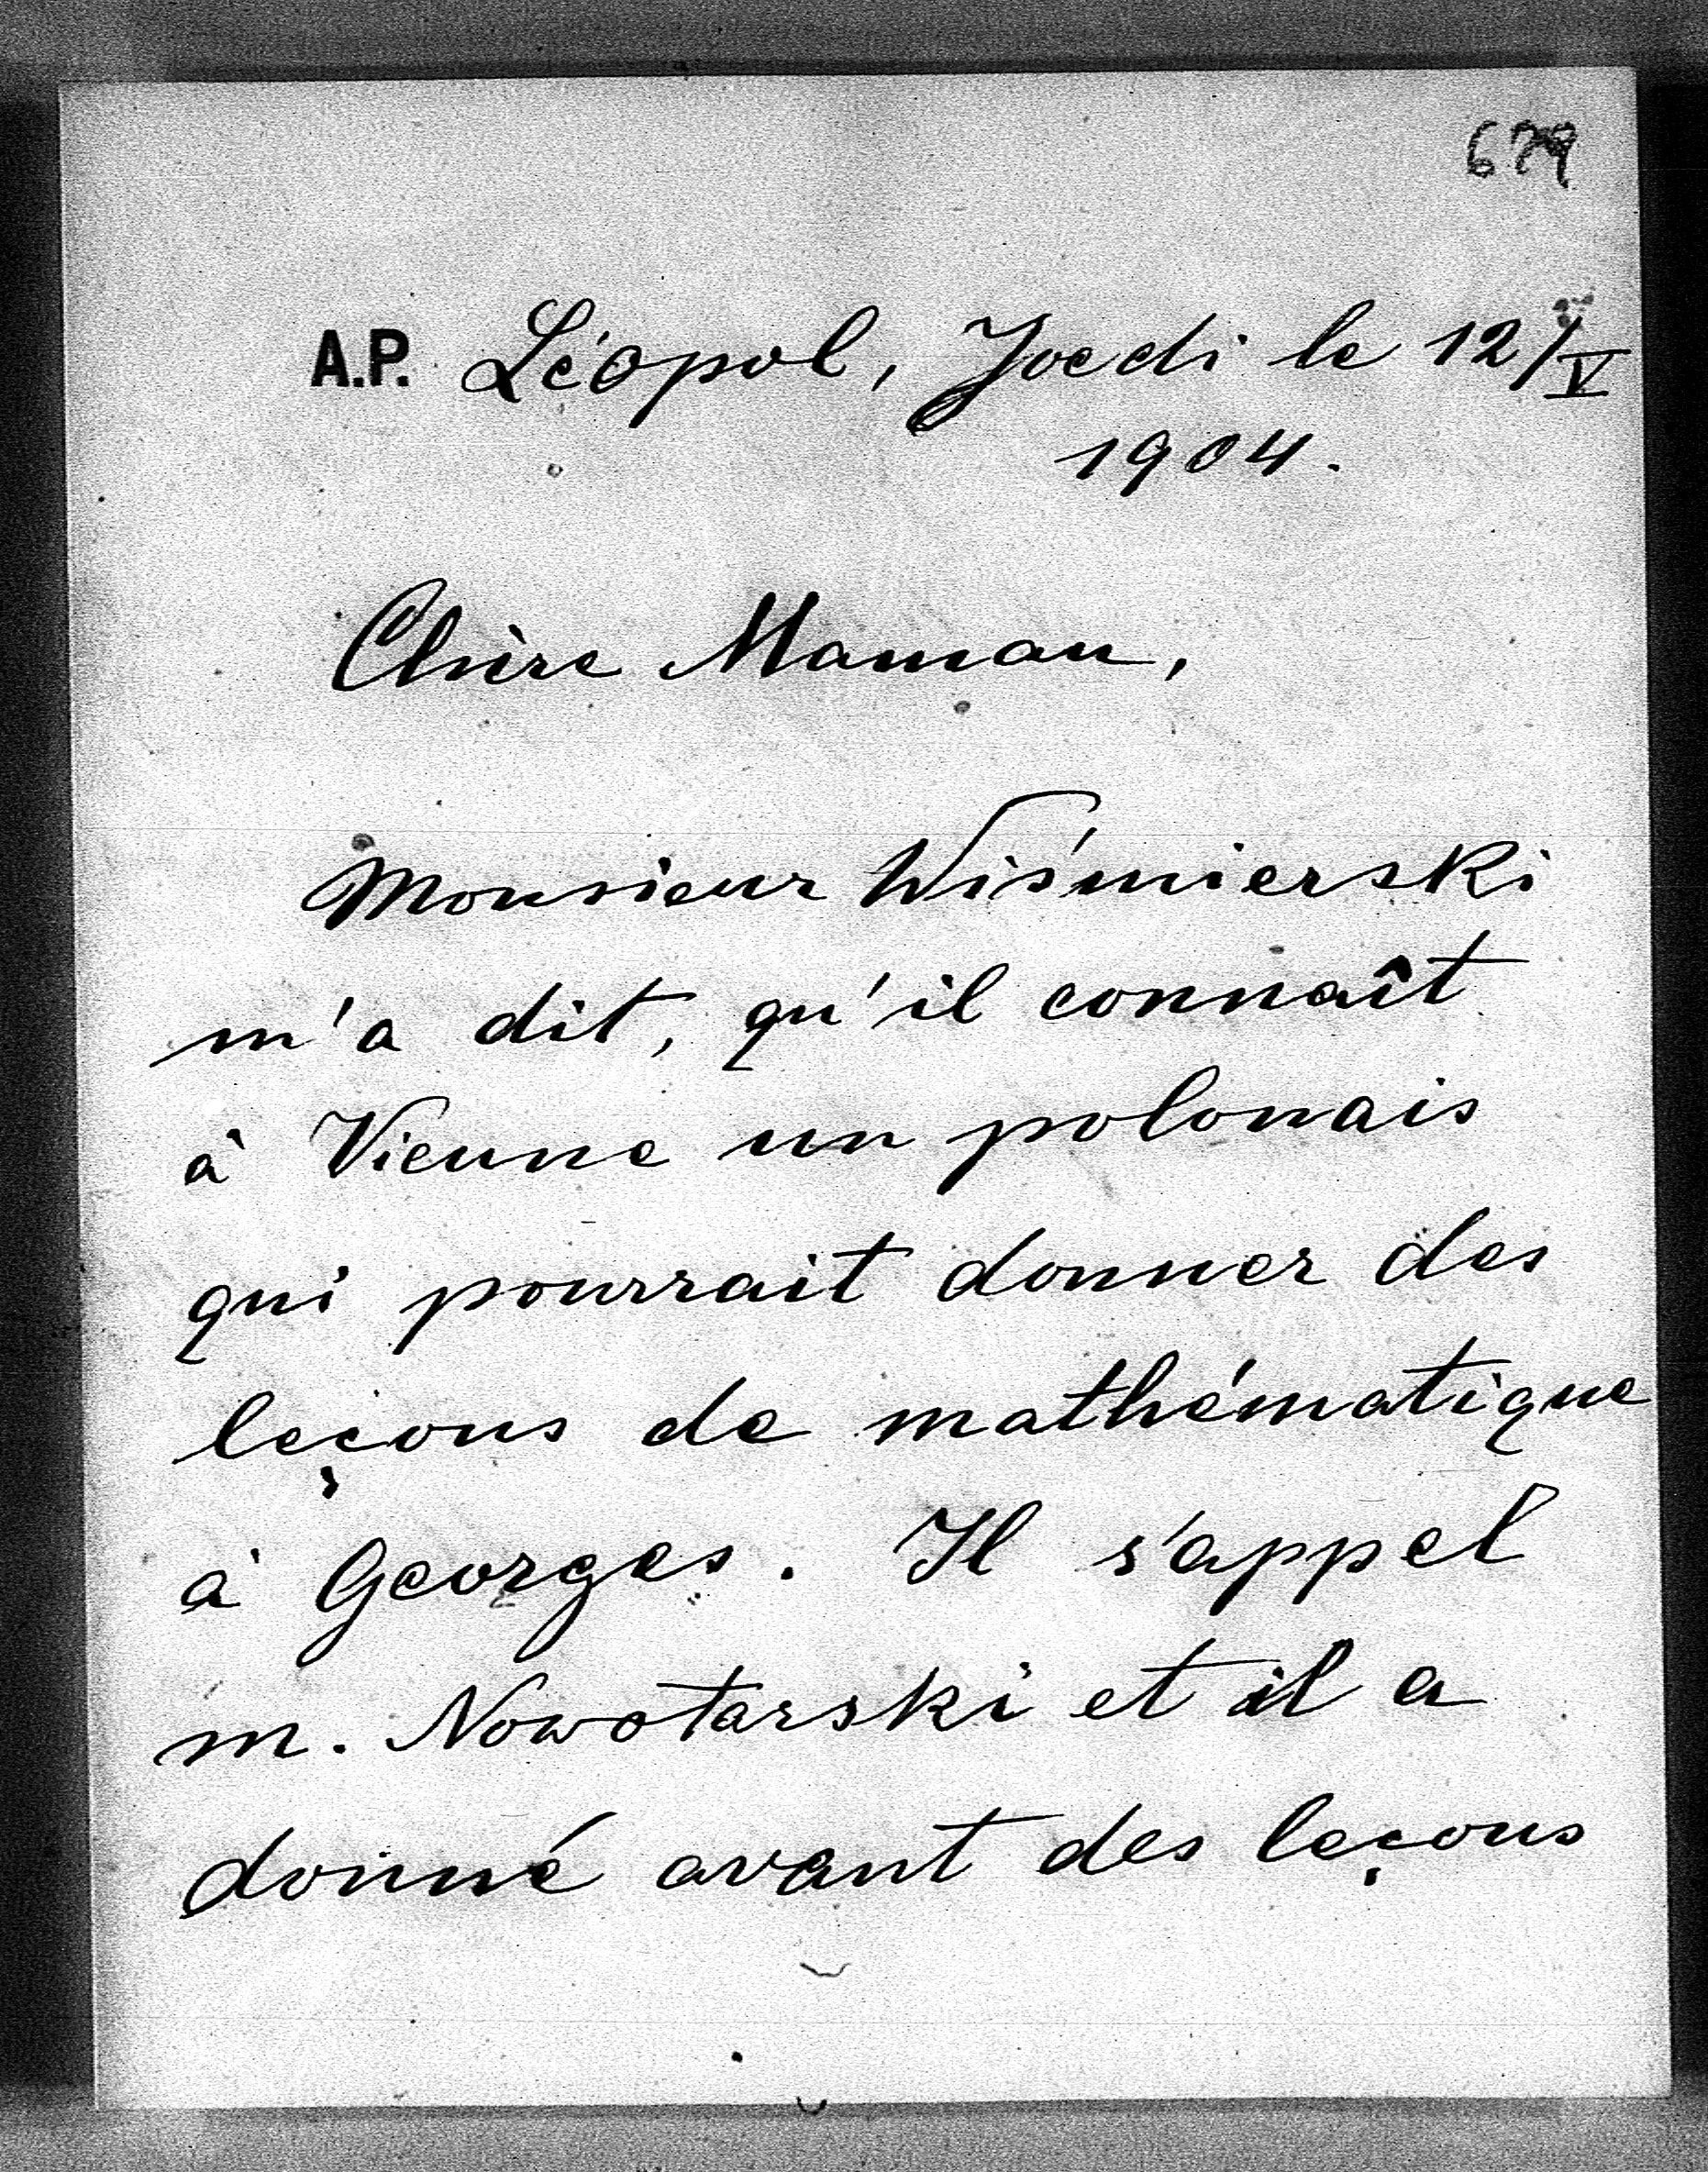 679
A.P. Léopol, Joedi le 12/V
1904.
Chère Maman,
Monsieur Wiśmierski
m'a dit, qu'il connaît
à Vienne un polonais
qui pourrait donner des
leçons de mathématique
à Georges. Il s'appel
m. Nowotarski et il a
donné avant des leçons